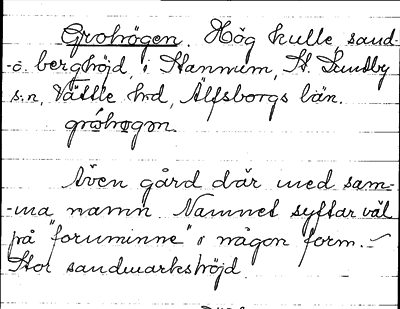 Grohögen. Hög kulle, sand-
-o. berghöjd, i Stannum, St. Lundby
s:n, Vättle hrd, Älfsborgs län.
gróhøgɷn.
Även gård där med sam-
-ma namn. Namnet syftar väl
på "fornminne" i någon form. –
Stor sandmarkshöjd